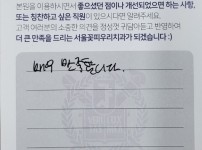 본원을 이용하시면서 좋으셨던 점이나 개선되었으면 하는 사항,
또는 칭찬하고 싶은 직원이 있으시다면 알려주세요.
고객 여러분의 소중한 의견을 정성껏 귀담아듣고 반영하여
더 큰 만족을 드리는 서울꽃피우리치과가 되겠습니다 :)
매우 만족합니다.